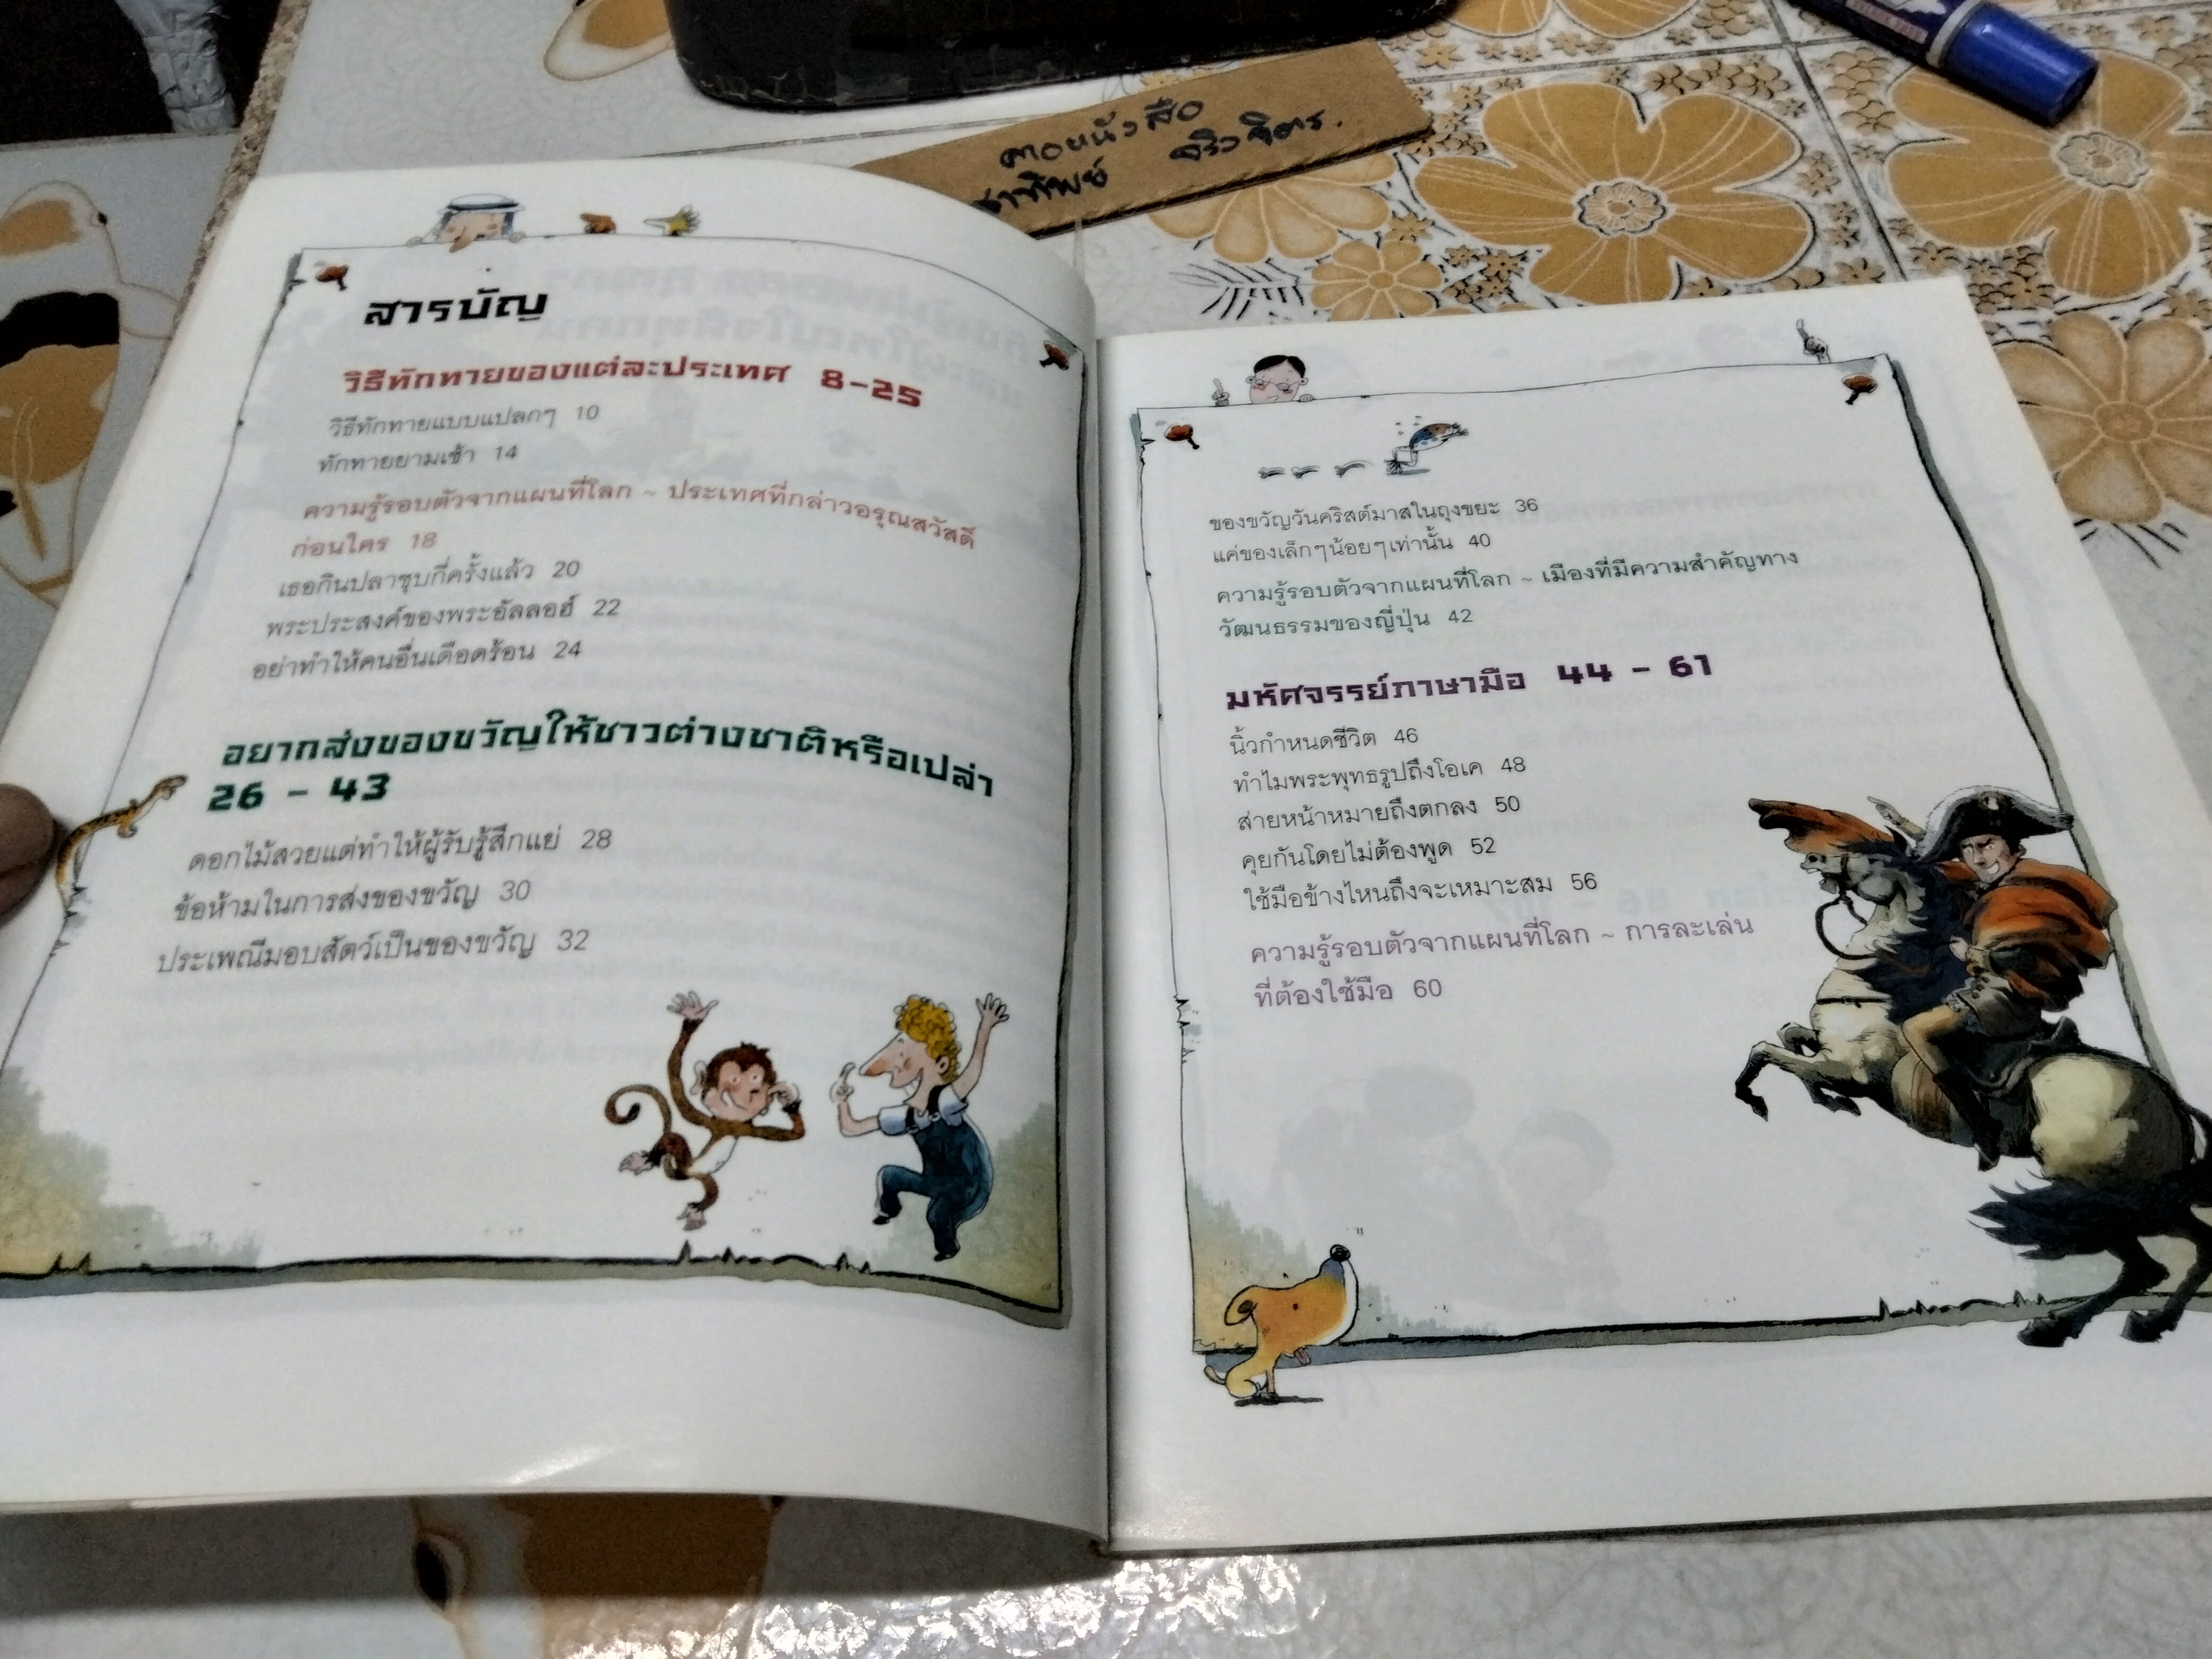 สารบัญ
วิธีทักทายของแต่ละประเทศ 8-25
วิธีทักทายแบบแปลกๆ 10
ทักทายยามเช้า 14
ความรู้รอบตัวจากแผนที่โลก ~ ประเทศที่กล่าวอรุณสวัสดิ์
ก่อนใคร 18
เธอกินปลาซุบกี่ครั้งแล้ว 20
พระประสงค์ของพระอัลลอฮ์ 22
อย่าทำให้คนอื่นเดือดร้อน 24
อยากส่งของขวัญให้ชาวต่างชาติหรือเปล่า
26 - 43
ดอกไม้สวยแต่ทำให้ผู้รับรู้สึกแย่ 28
ข้อห้ามในการส่งของขวัญ 30
ประเพณีมอบสัตว์เป็นของขวัญ 32
ของขวัญวันคริสต์มาสในถุงขยะ 36
แค่ของเล็กๆน้อยๆเท่านั้น 40
ความรู้รอบตัวจากแผนที่โลก ~ เมืองที่มีความสำคัญทาง
วัฒนธรรมของญี่ปุ่น 42
มหัศจรรย์ภาษามือ 44 - 61
นิ้วกำหนดชีวิต 46
ทำไมพระพุทธรูปถึงโอเค 48
ส่ายหน้าหมายถึงตกลง 50
คุยกันโดยไม่ต้องพูด 52
ใช้มือข้างไหนถึงจะเหมาะสม 56
ความรู้รอบตัวจากแผนที่โลก ~ การละเล่น
ที่ต้องใช้มือ 60